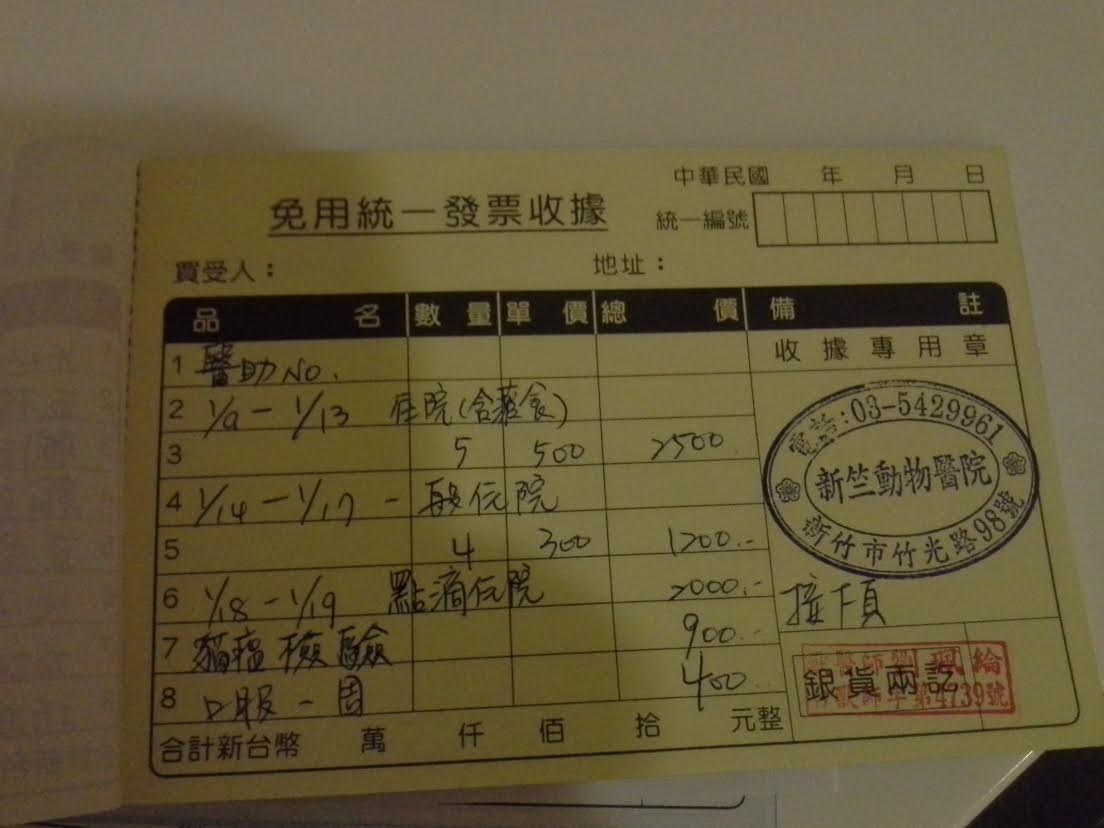 中華民國 年 月 日
免用統一發票收據
統一編號
買受人：
地址：
品名 數量 單價 總價 備註
收據專用章
1 醫助No.
2 1/9－1/13 住院(含藥食)
3 5 500 2500
電話:03-5429961
新竺動物醫院
新竹市竹光路98號
4 1/14－1/17 一般住院
5 4 300 1200.-
6 1/18－1/19 點滴住院 2000.-
接下頁
7 貓瘟檢驗 900.-
8 口服一週 400
銀貨兩訖
第4739號
合計新台幣 萬 仟 佰 拾 元整